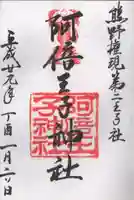 熊野権現第二王子社
阿倍王子神社
平成廿九年丁酉一月六日
阿倍王
子神社